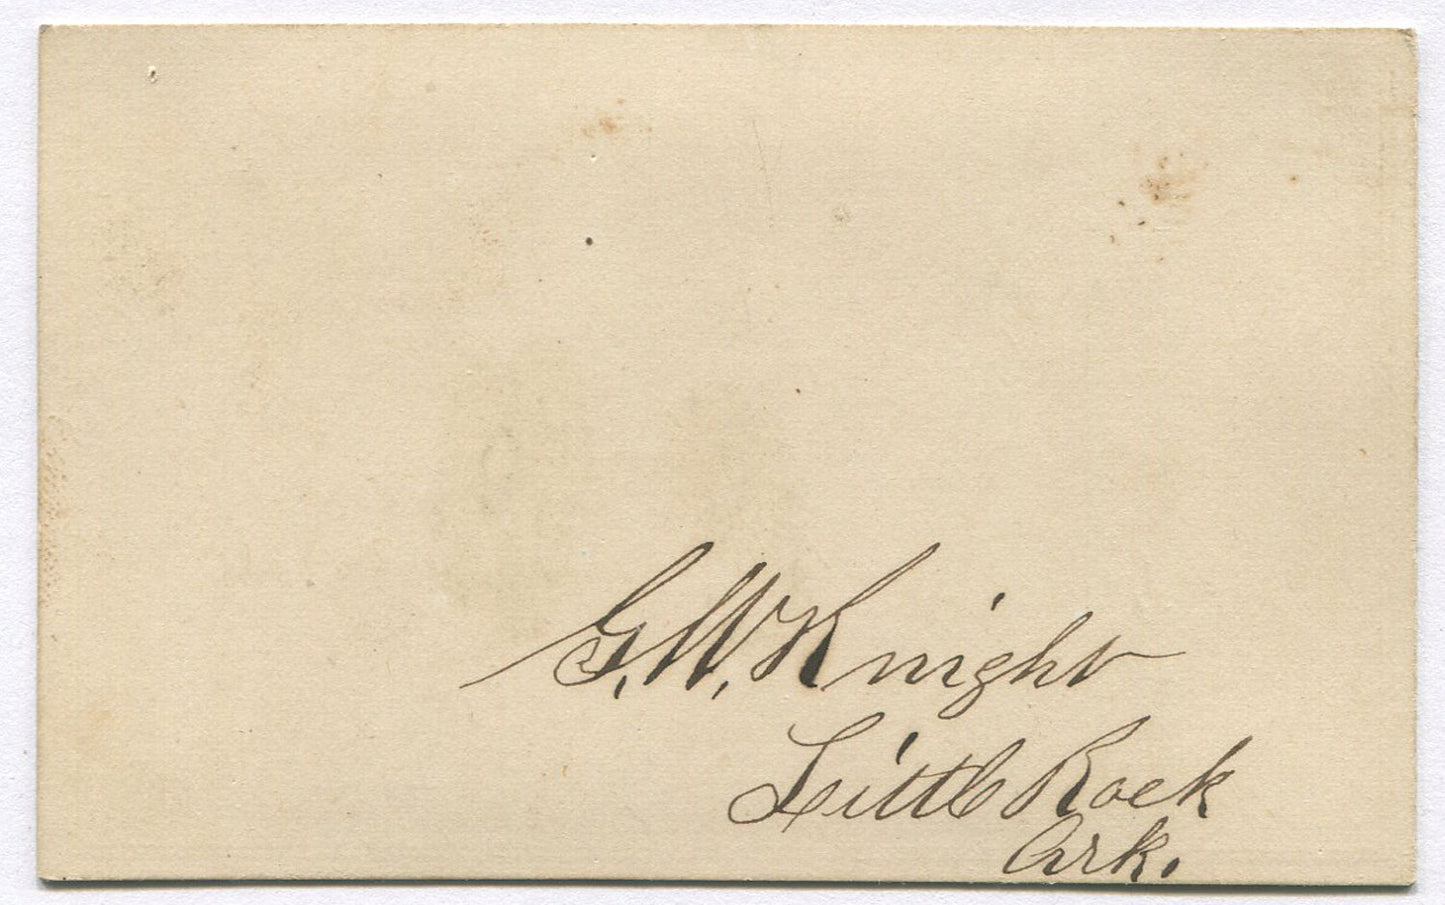 G. W. Knight
Little Rock
Ark.